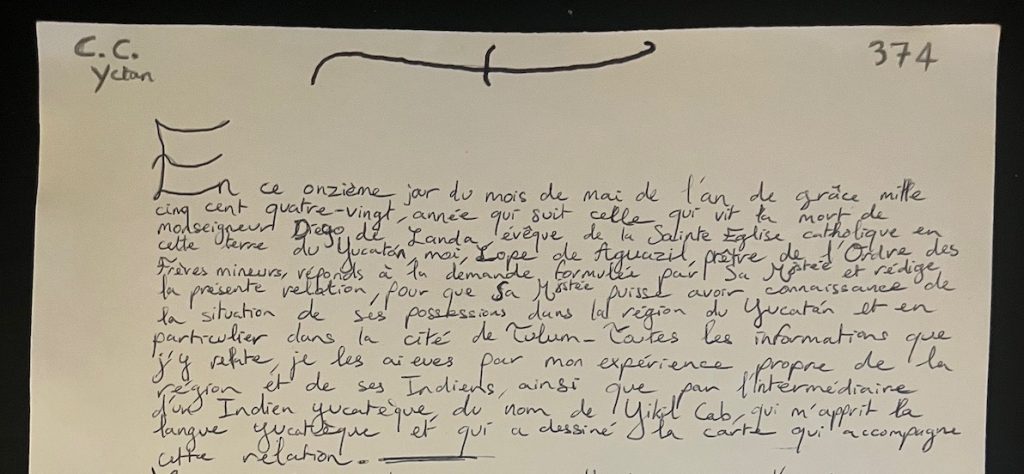 C. C.
Yctan
374
En ce onzième jour du mois de mai de l'an de grâce mille
cinq cent quatre-vingt, année qui suit celle qui vit la mort de
monseigneur Diego de Landa, évêque de la Sainte Eglise catholique en
cette terre du Yucatán, moi, Lope de Aguazil, prêtre de l'Ordre des
Frères mineurs, réponds à la demande formulée par Sa Mᵃˢᵗᵉᵉ et rédige
la présente relation, pour que Sa Mᵃˢᵗᵉᵉ puisse avoir connaissance de
la situation de ses possessions dans la région du Yucatán et en
particulier dans la cité de Tulum. Toutes les informations que
j'y relate, je les ai eues par mon expérience propre de la
région et de ses Indiens, ainsi que par l'intermédiaire
d'un Indien yucatèque, du nom de Yikil Cab, qui m'apprit la
langue yucatèque et qui a dessiné la carte qui accompagne
cette relation.